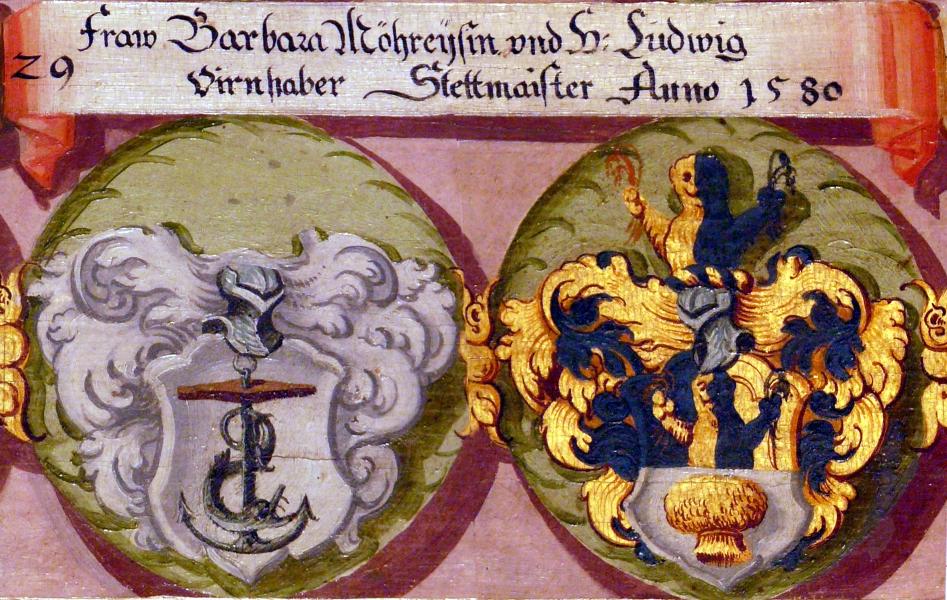 29
Fraw Barbara Möhreysin vnd H: Ludwig
Virnhaber Stettmaister Anno 1580